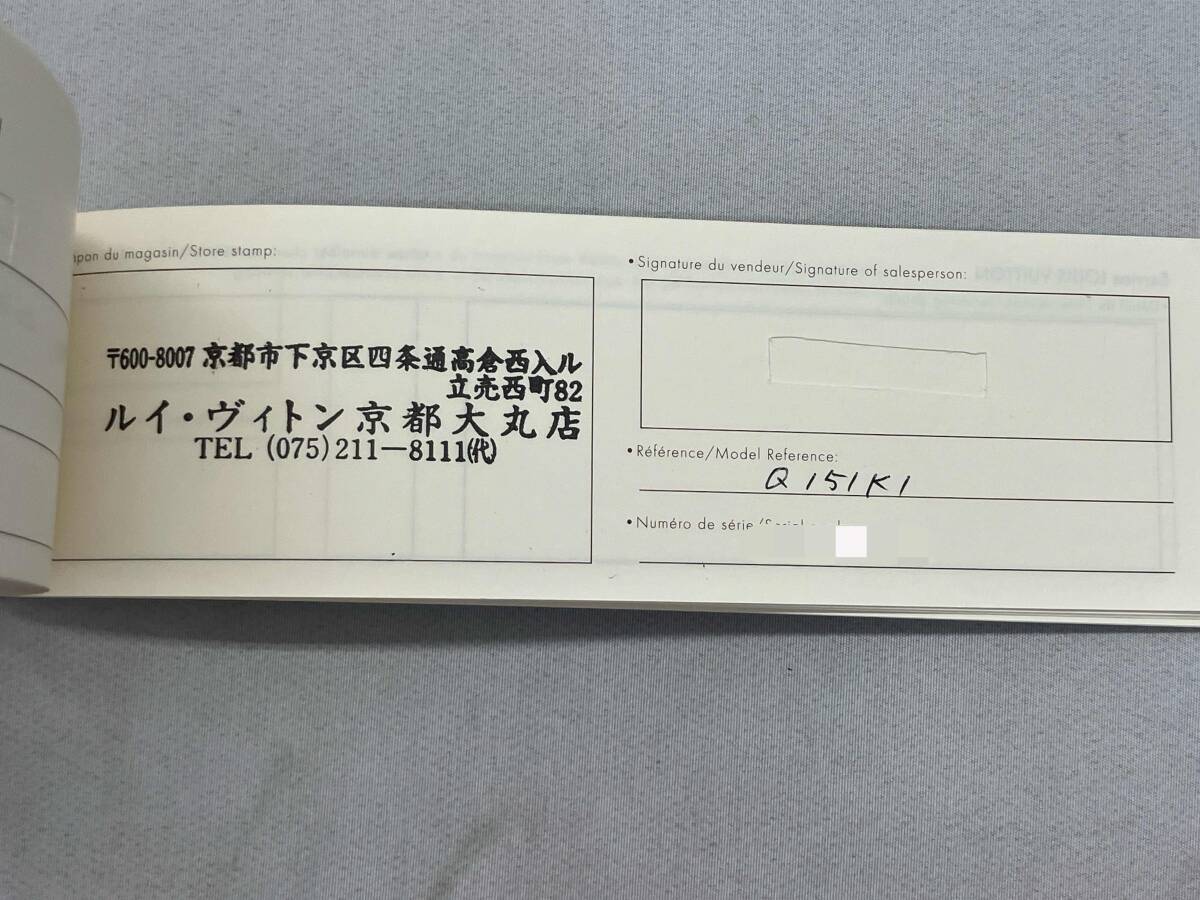 mpon du magasin/Store stamp:
〒600-8007 京都市下京区四条通高倉西入ル
立売西町82
ルイ・ヴィトン京都大丸店
TEL (075)211-8111㈹
• Signature du vendeur/Signature of salesperson:
• Référence/Model Reference:
Q151K1
• Numéro de série/Serial